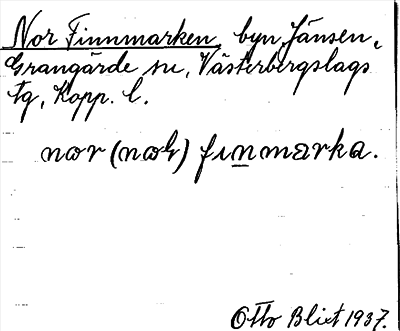 Nor Finnmarken, byn, Jänsen,
Grangärde sn, Västerbergslags
tg, Kopp. l.
nor (noł) finmarka.
Otto Blixt 1937.